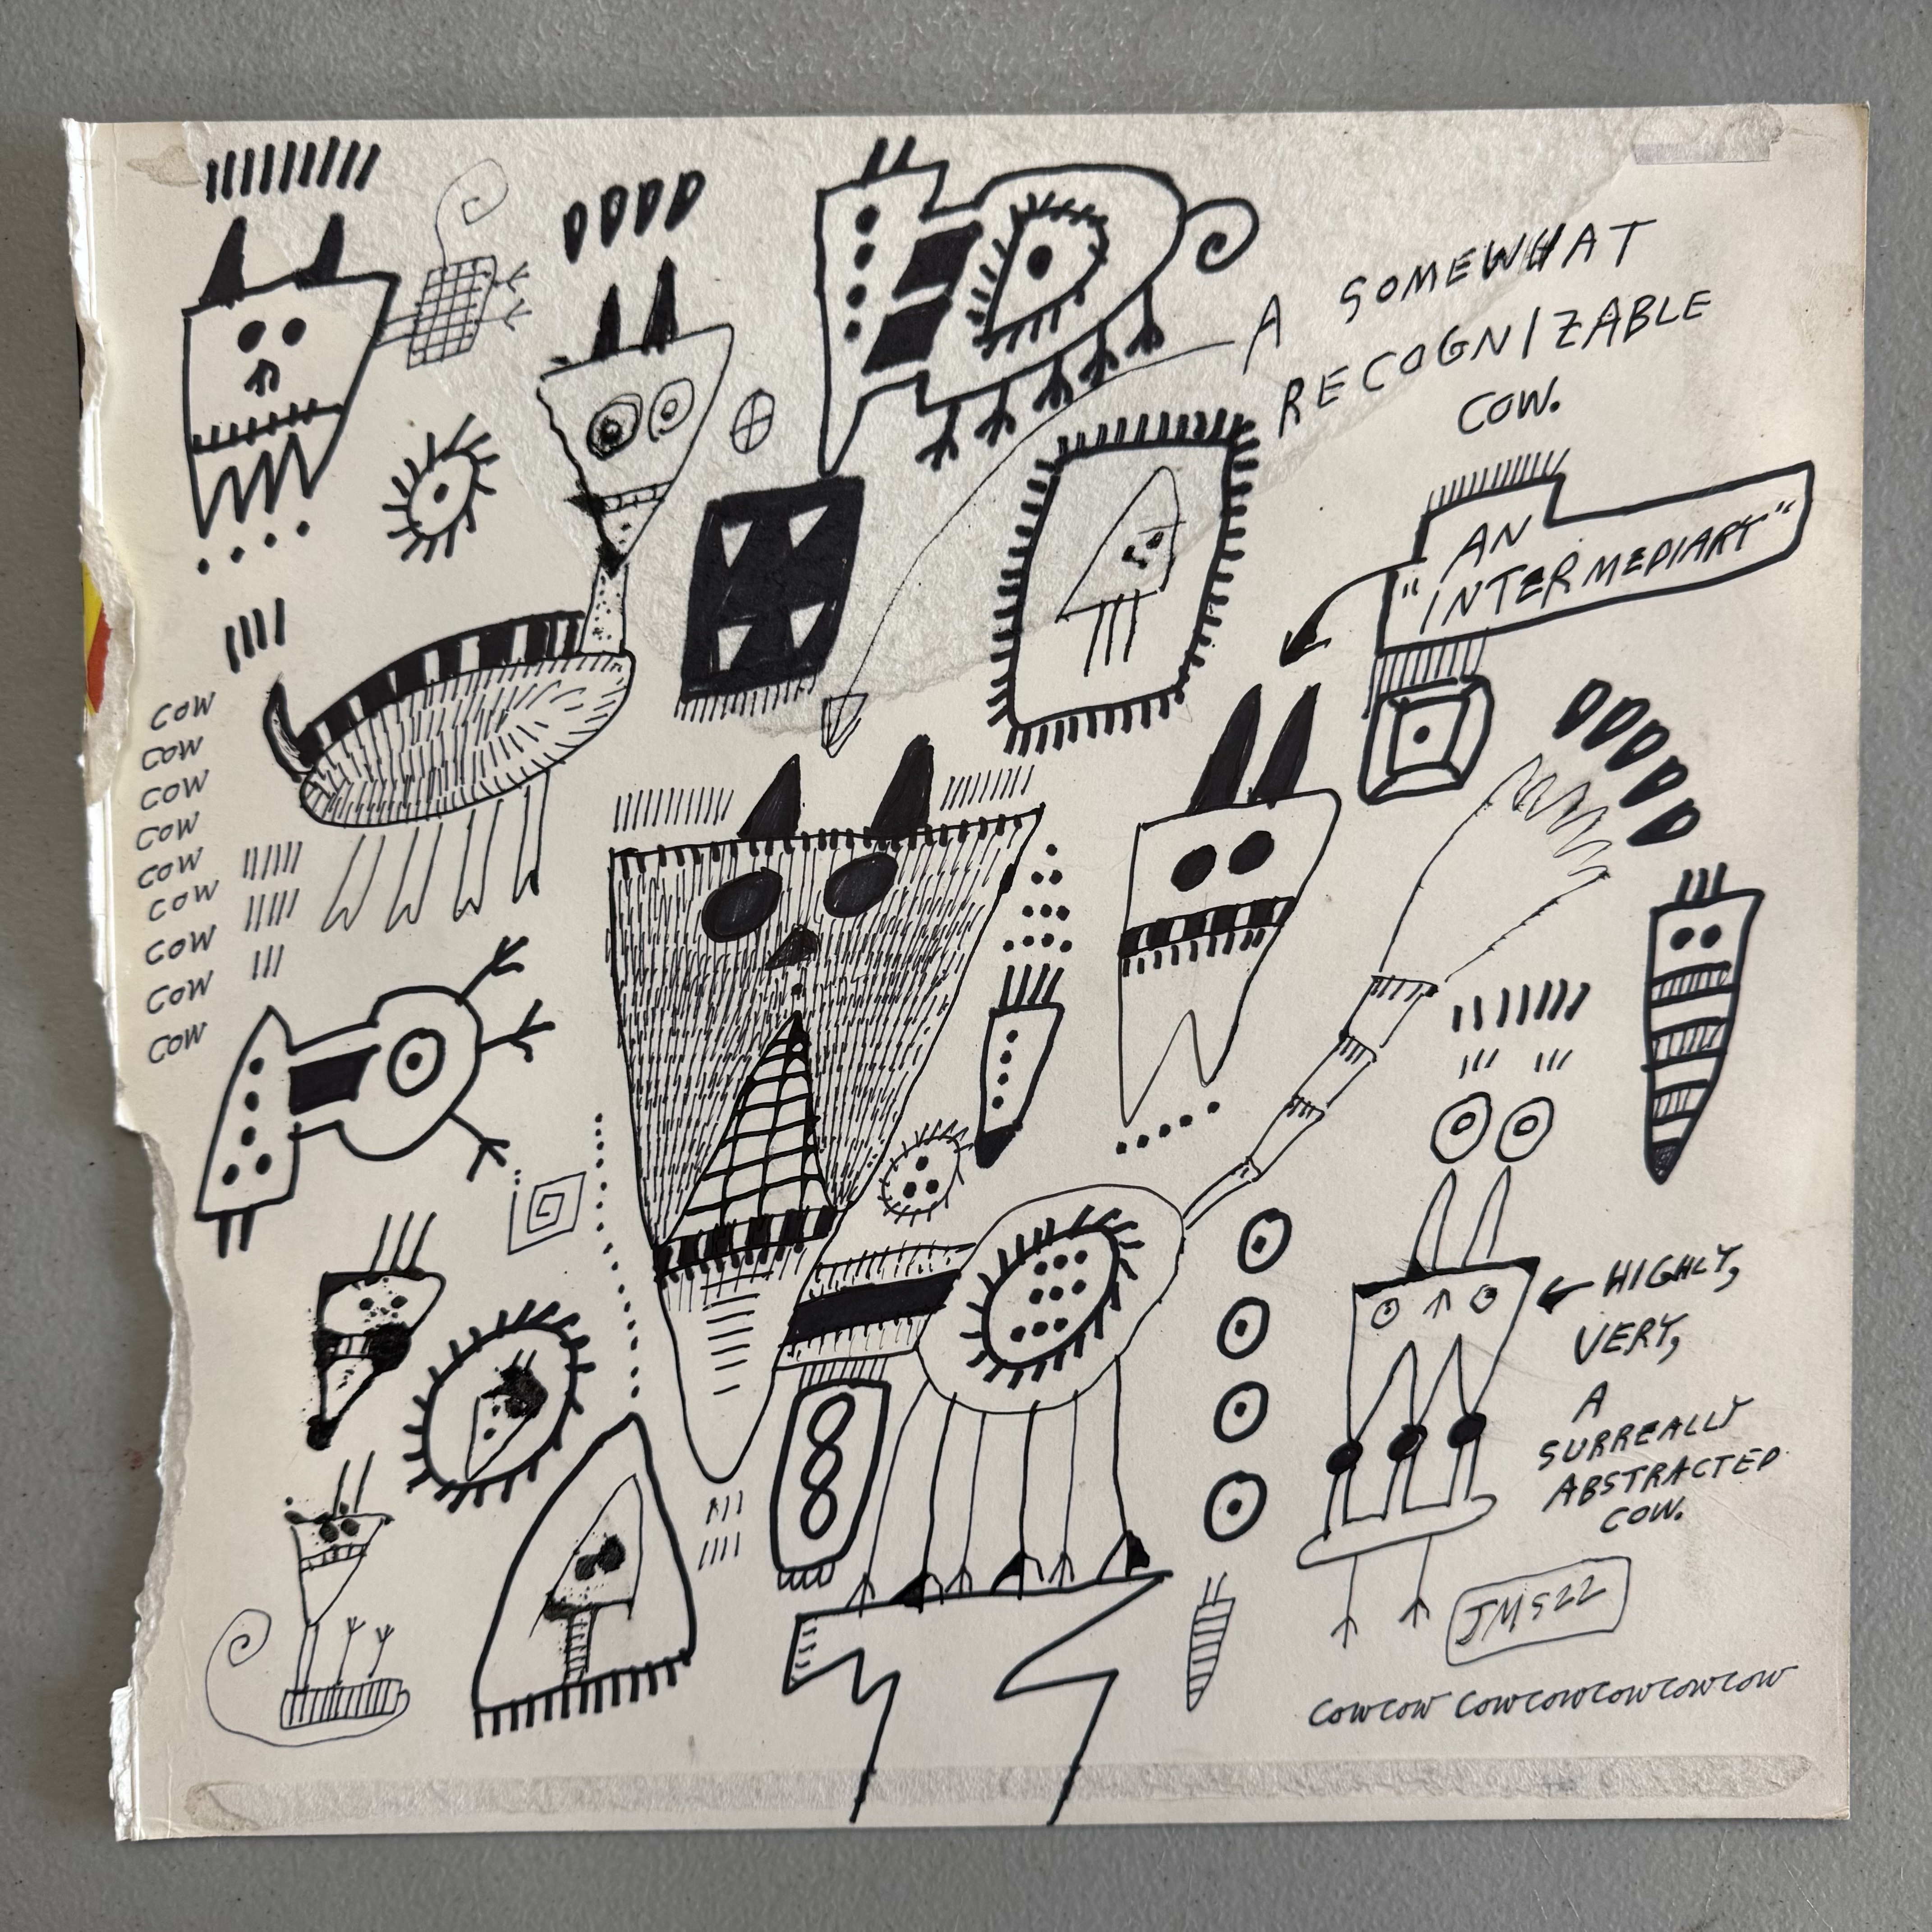 A SOMEWHAT
RECOGNIZABLE
COW.
AN
"INTERMEDIARY"
COW
COW
COW
COW
COW
COW
COW
COW
COW
HIGHLY,
VERY,
A
SURREALLY
ABSTRACTED
COW.
JMS22
COWCOW COWCOWCOWCOWCOW